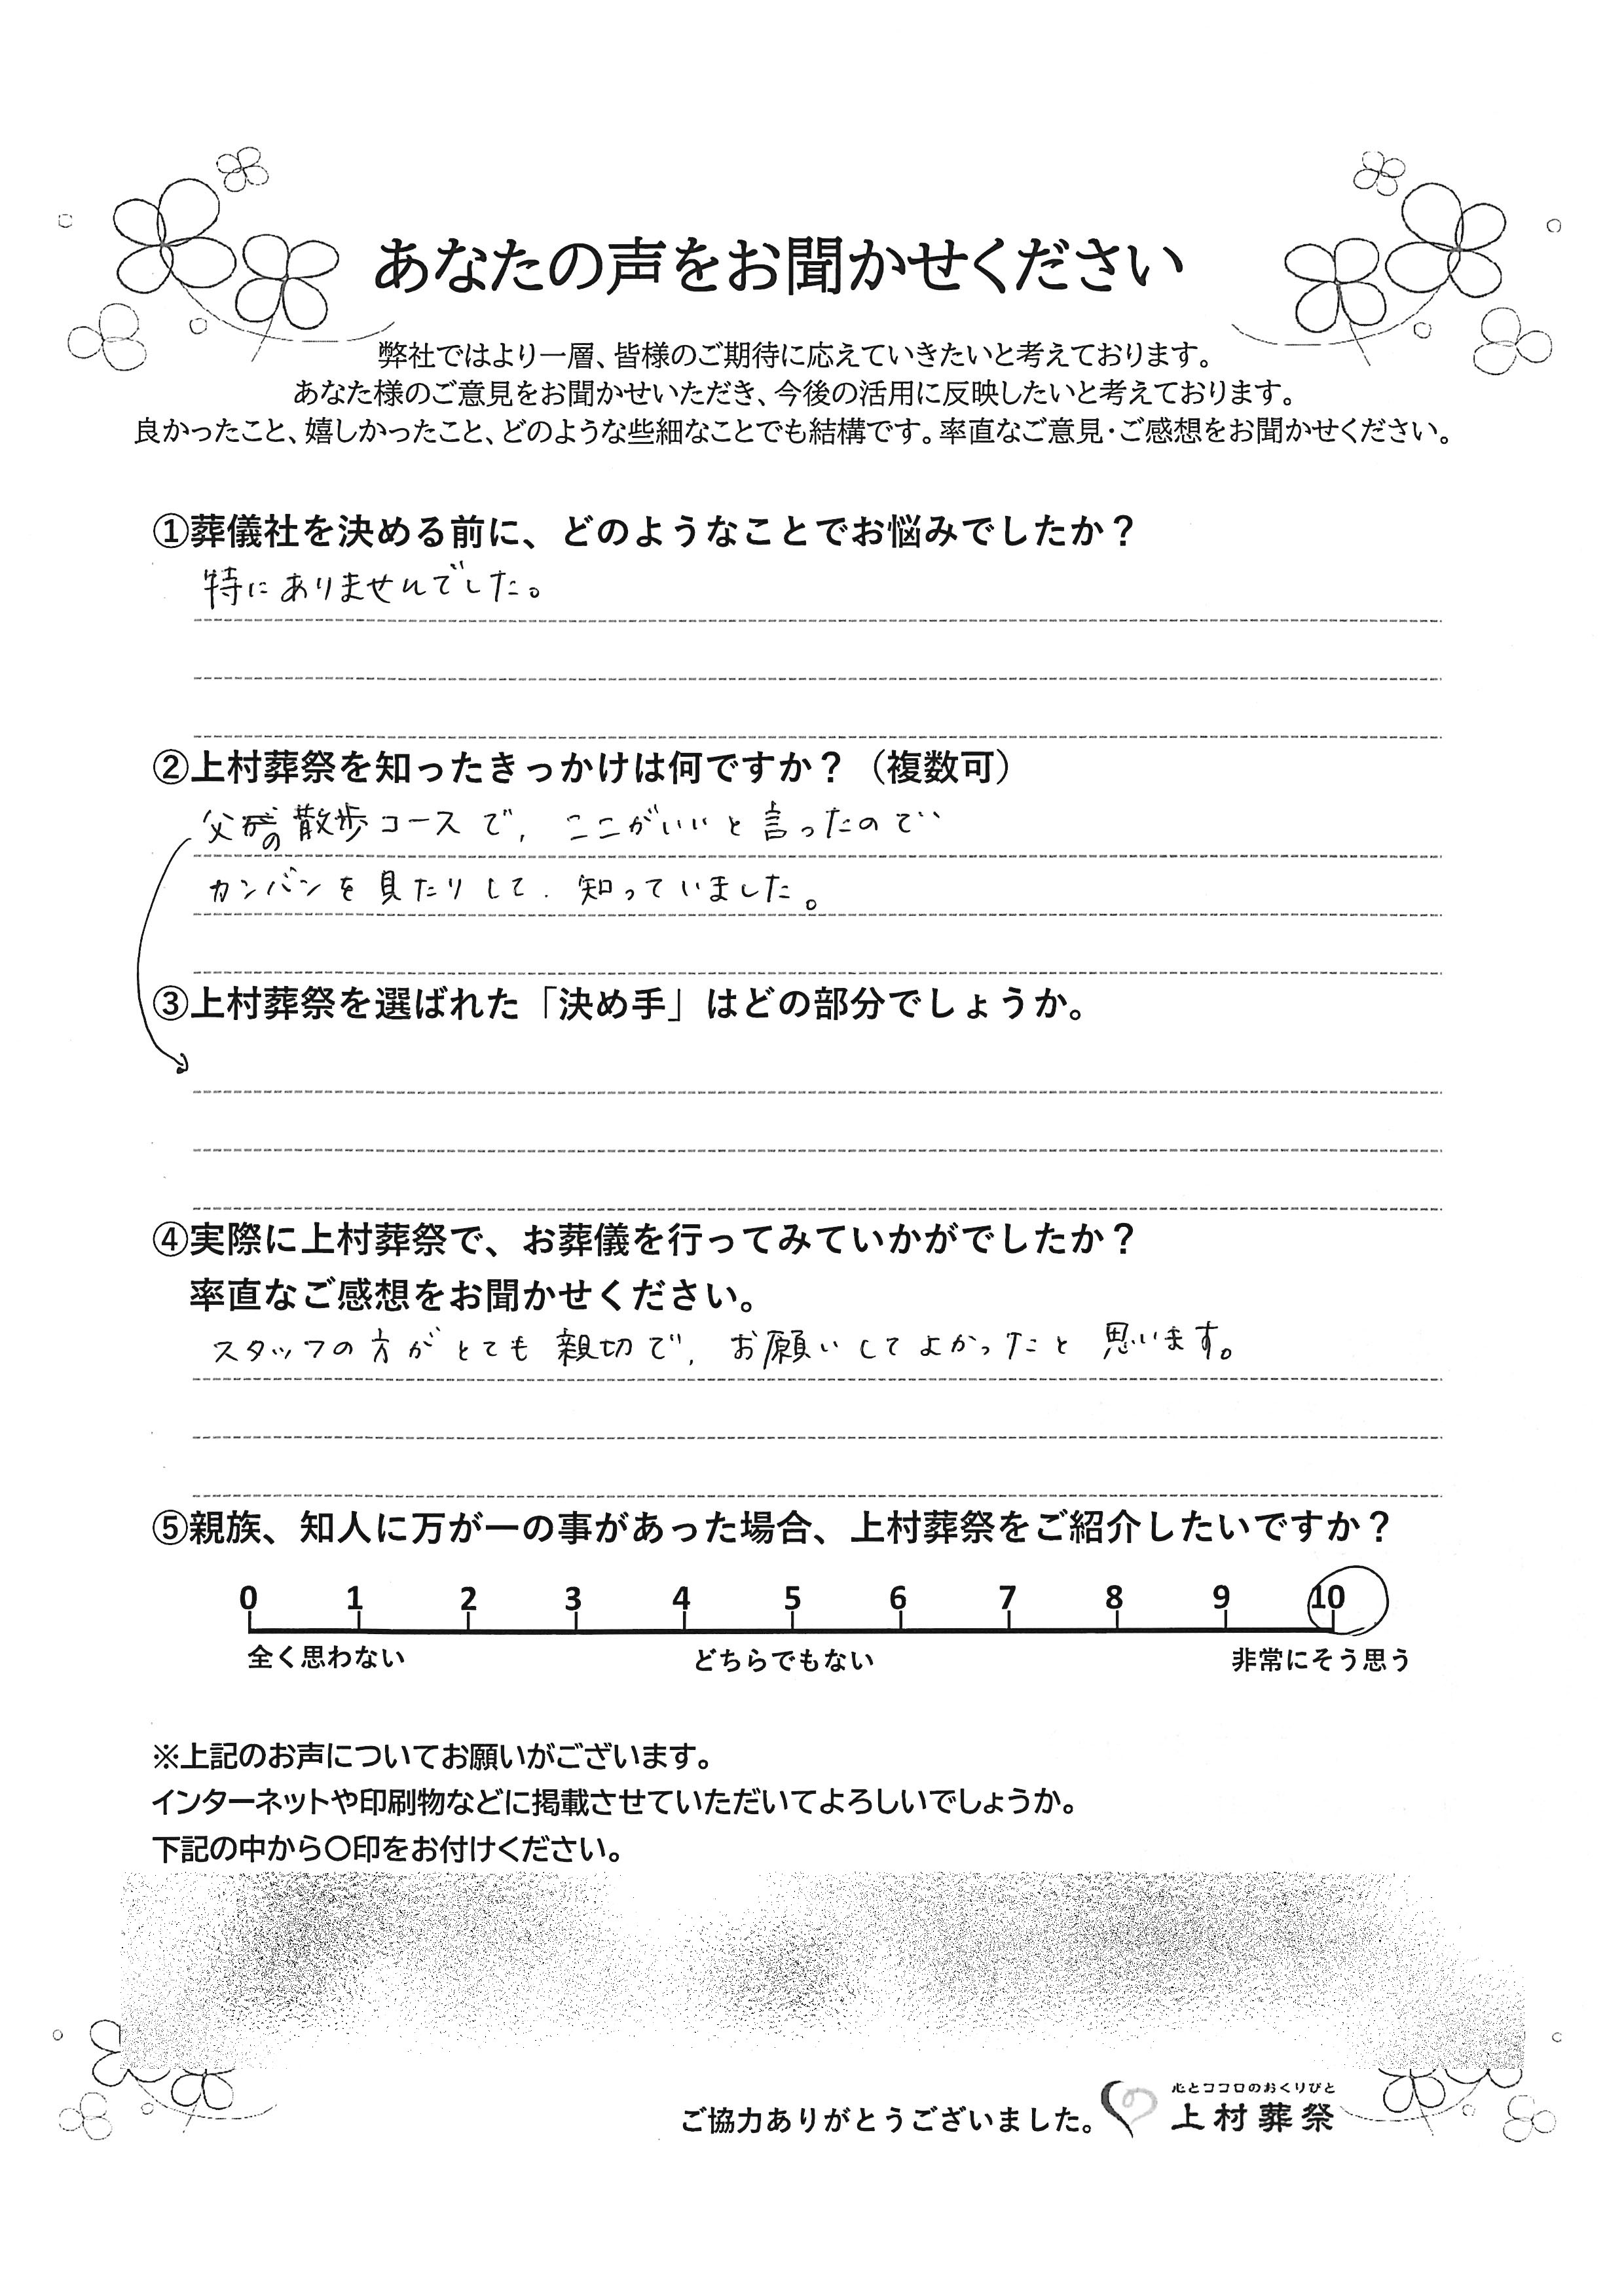 あなたの声をお聞かせください
弊社ではより一層、皆様のご期待に応えていきたいと考えております。
あなた様のご意見をお聞かせいただき、今後の活用に反映したいと考えております。
良かったこと、嬉しかったこと、どのような些細なことでも結構です。率直なご意見・ご感想をお聞かせください。
①葬儀社を決める前に、どのようなことでお悩みでしたか？
特にありませんでした。
②上村葬祭を知ったきっかけは何ですか？（複数可）
父の散歩コースで、ここがいいと言ったので
カンバンを見たりして、知っていました。
③上村葬祭を選ばれた「決め手」はどの部分でしょうか。
④実際に上村葬祭で、お葬儀を行ってみていかがでしたか？
率直なご感想をお聞かせください。
スタッフの方がとても親切で、お願いしてよかったと思います。
⑤親族、知人に万が一の事があった場合、上村葬祭をご紹介したいですか？
0 1 2 3 4 5 6 7 8 9 10
全く思わない どちらでもない 非常にそう思う
※上記のお声についてお願いがございます。
インターネットや印刷物などに掲載させていただいてよろしいでしょうか。
下記の中から〇印をお付けください。
心とココロのおくりびと
ご協力ありがとうございました。 上村葬祭